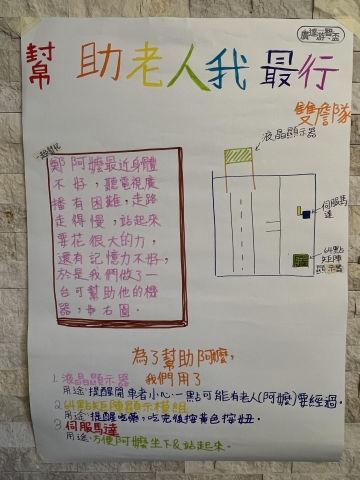 幫助老人我最行
雙詹隊
鄭阿嬤最近身體
不好，聽電視廣
播有困難，走路
走得慢，站起來
要花很大的力，
還有記憶力不好，
於是我們做了一
台可幫助他的機
器，如右圖。
液晶顯示器
伺服馬
達
64點
矩陣
顯示器
為了幫助阿嬤，
我們用了
1.液晶顯示器
用途：提醒開車者小心一點可能有老人(阿嬤)要經過。
2.64點矩陣顯示模組
用途：提醒吃藥，吃完後按黃色按鈕。
3.伺服馬達
用途：方便阿嬤坐下&站起來。